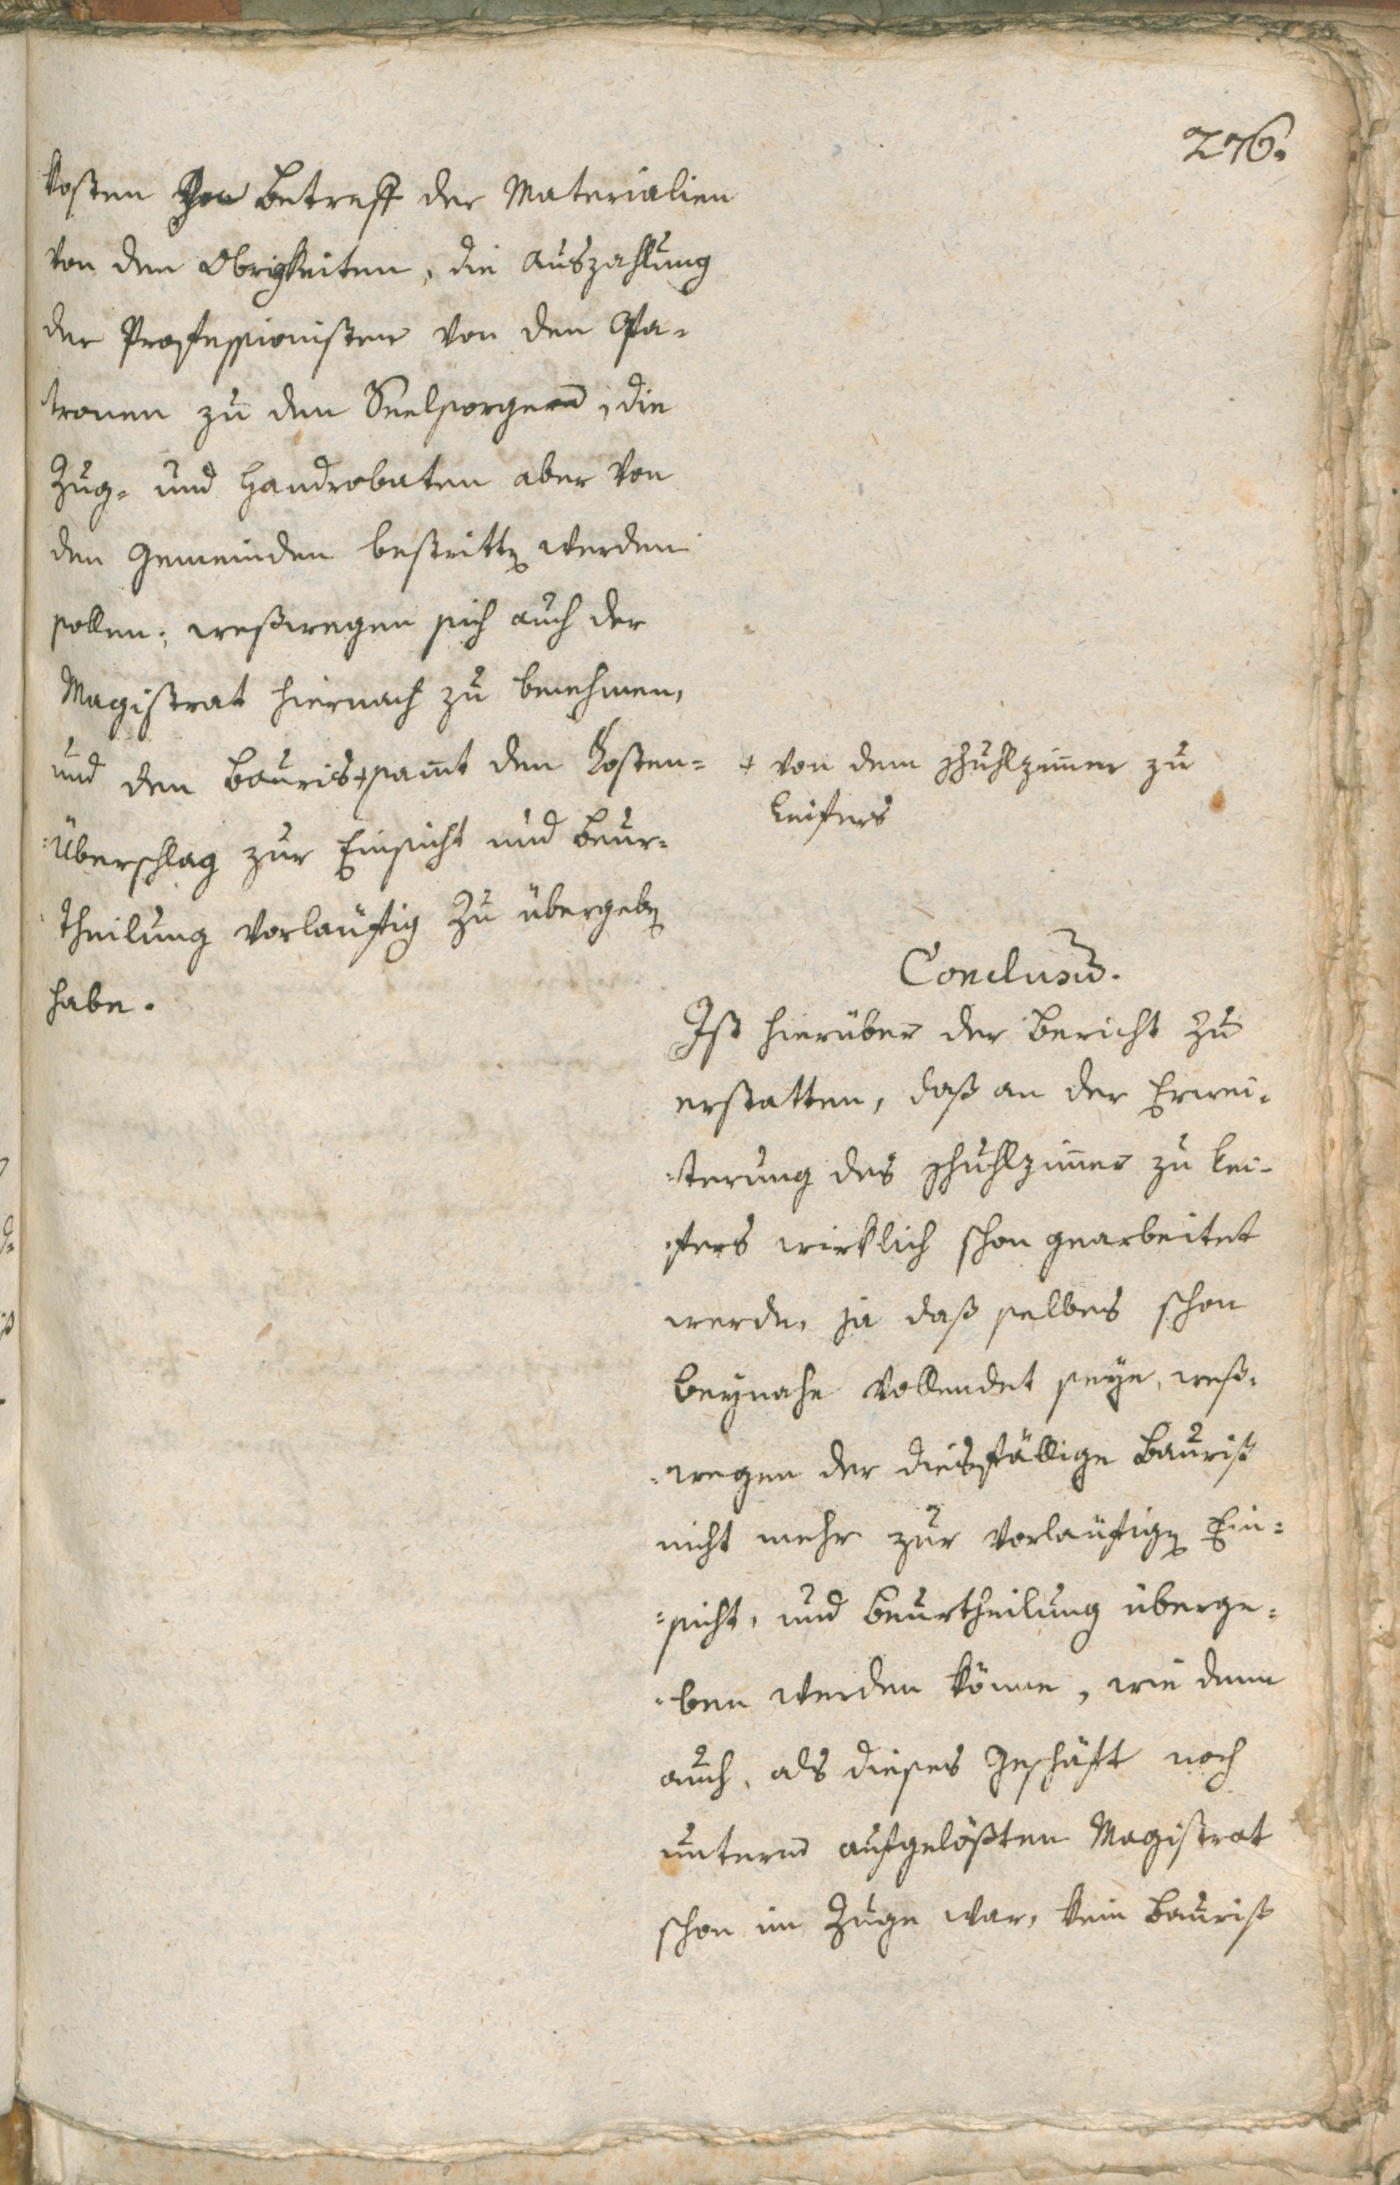 276.
kosten Betreff der Materialien
von den Obrigkeiten, die Auszahlung
der Professionisten von den Pa-
tronen zu den Seelsorgern, die
Zug- und Handrobaten aber von
den Gemeinden bestritten werden
sollen; weßwegen sich auch der
Magistrat hiernach zu benehmen,
und den Bauris + sammt den Kosten-
überschlag zur Einsicht und Beur-
theilung vorläufig zu übergeben
habe.
+ von dem Schuhlzimmer zu
Leifers
Conclusum.
Ist hierüber der Bericht zu
erstatten, daß an der Erwei-
terung des Schuhlzimmer zu Lei-
fers wirklich schon gearbeitet
werde, ja daß selbes schon
beynahe vollendet seye, weß-
wegen der diesfällige Bauriß
nicht mehr zur vorläufigen Ein-
sicht, und Beurtheilung überge-
ben werden könne, wie denn
auch, als dieses Geschäft noch
unterm aufgelößten Magistrat
schon im Zuge war, kein Bauriß